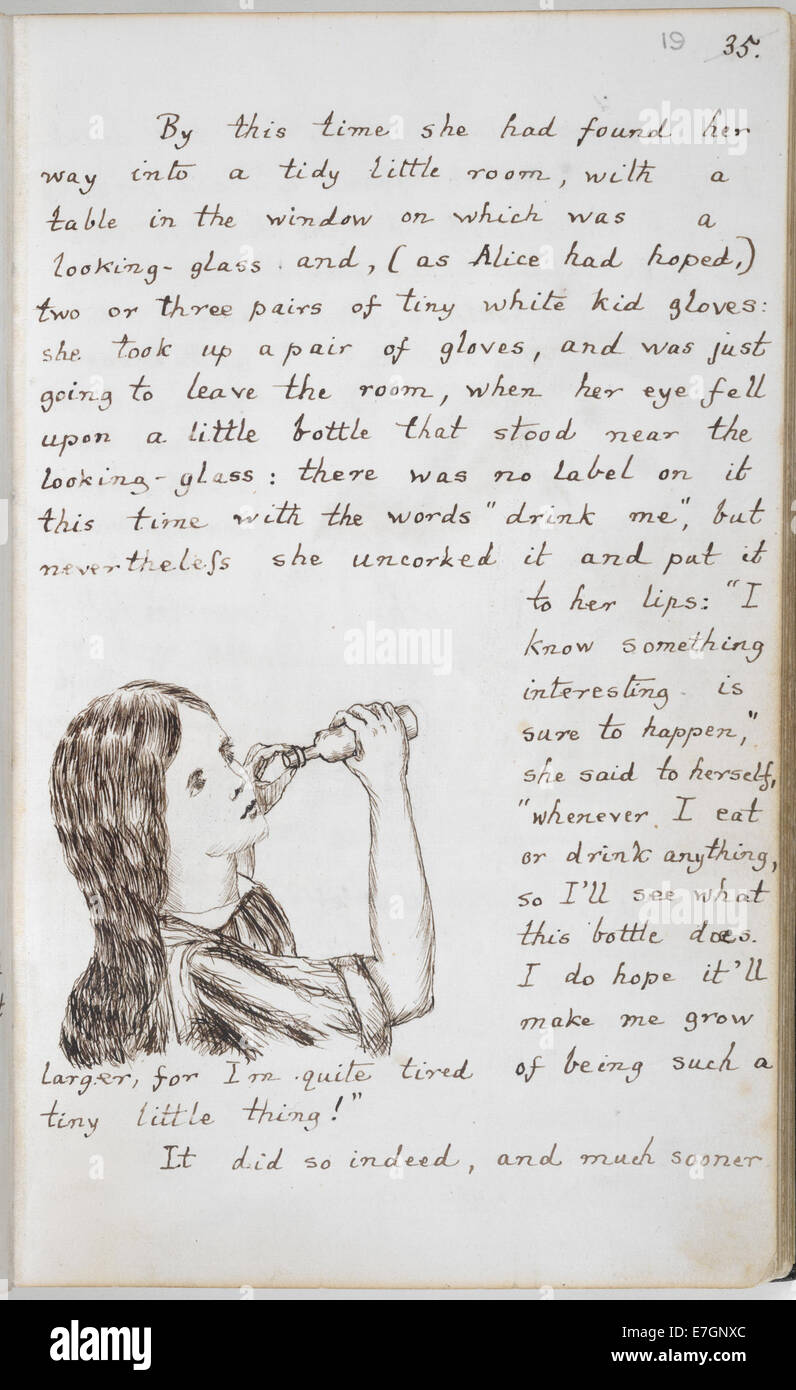 19 35.
By this time she had found her
way into a tidy little room, with a
table in the window on which was a
looking-glass and, (as Alice had hoped,)
two or three pairs of tiny white kid gloves:
she took up a pair of gloves, and was just
going to leave the room, when her eye fell
upon a little bottle that stood near the
looking-glass: there was no label on it
this time with the words "drink me", but
nevertheleſs she uncorked it and put it
to her lips: "I
know something
interesting is
sure to happen,"
she said to herself,
"whenever I eat
or drink anything,
so I'll see what
this bottle does.
I do hope it'll
make me grow
larger, for I'm quite tired of being such a
tiny little thing!"
It did so indeed, and much sooner
alamy
alamy stock photo
E7GNXC
www.alamy.com